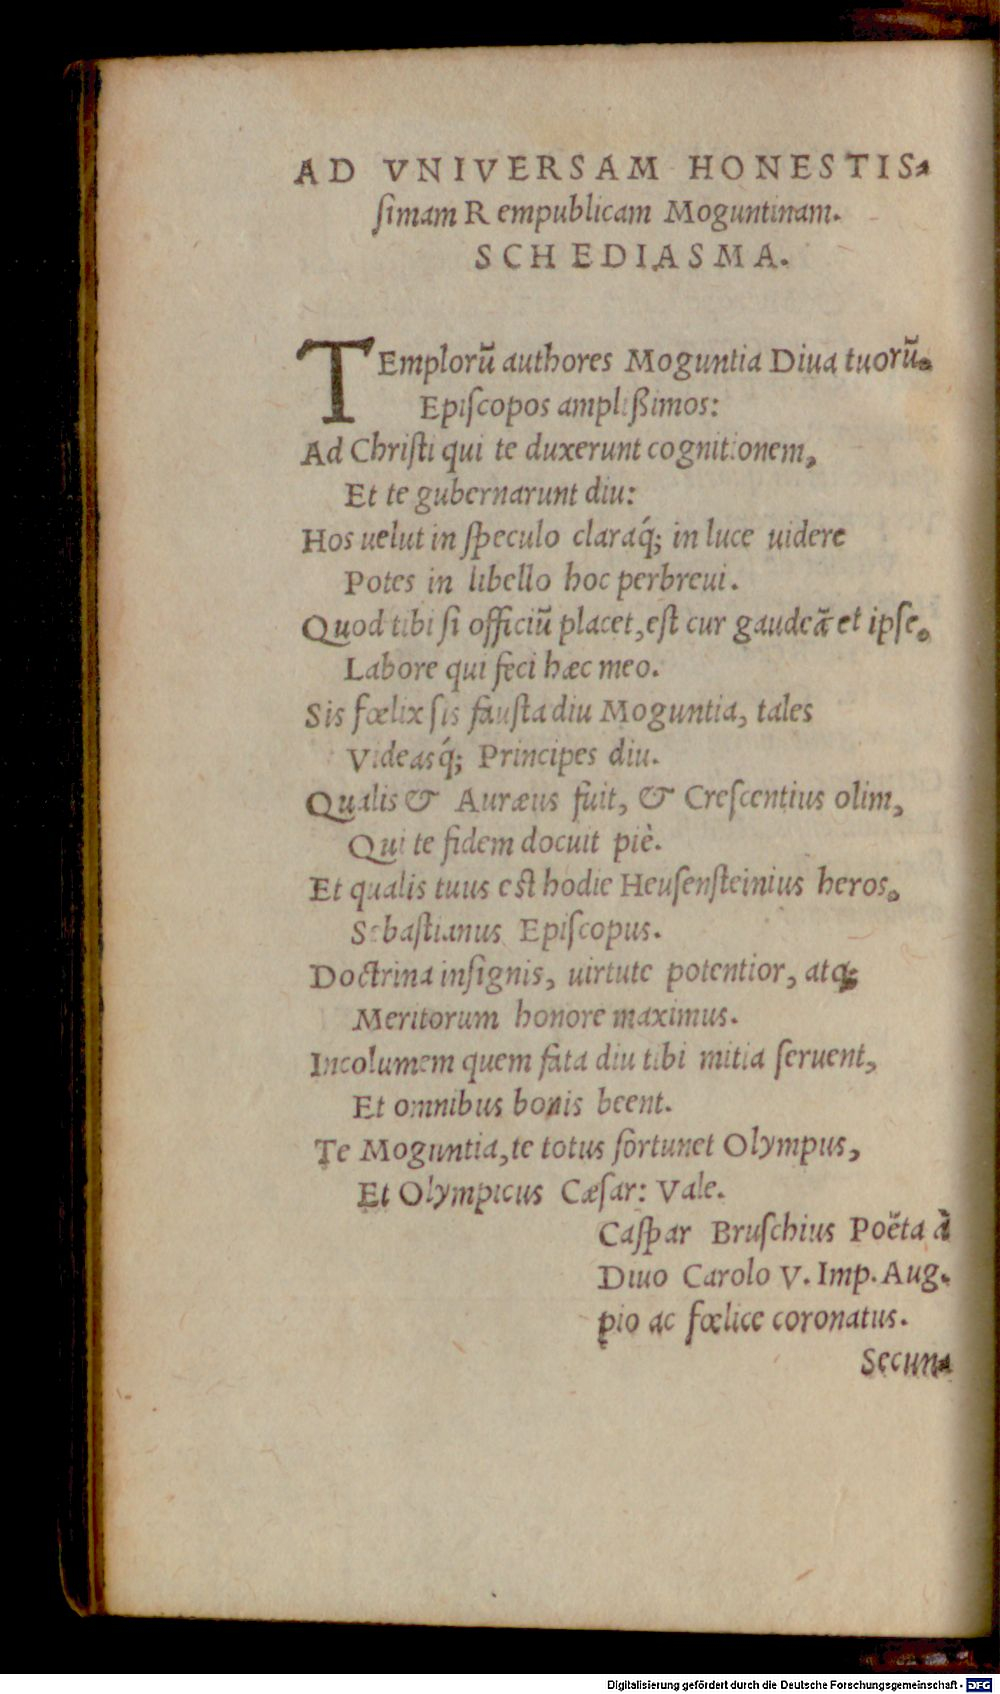 AD VNIVERSAM HONESTIS-
ſimam Rempublicam Moguntinam.
SCHEDIASMA.
TEmplorũ authores Moguntia Diua tuorũ.
Epiſcopos ampliſſimos:
Ad Chriſti qui te duxerunt cognitionem,
Et te gubernarunt diu:
Hos uelut in ſpeculo claraq́; in luce uidere
Potes in libello hoc perbreui.
Quod tibi ſi officiũ placet, eſt cur gaudeã et ipſe.
Labore qui feci hæc meo.
Sis fœlix ſis fauſta diu Moguntia, tales
Videasq́; Principes diu.
Qualis & Auræus fuit, & Creſcentius olim,
Qui te fidem docuit piè.
Et qualis tuus eſt hodie Heuſenſteinius heros.
Sebaſtianus Epiſcopus.
Doctrina inſignis, uirtute potentior, atq;
Meritorum honore maximus.
Incolumem quem fata diu tibi mitia ſeruent,
Et omnibus bonis beent.
Te Moguntia, te totus fortunet Olympus,
Et Olympicus Cæſar: Vale.
Caſpar Bruſchius Poëta à
Diuo Carolo V. Imp. Aug.
pio ac fœlice coronatus.
Secun-
Digitalisierung gefördert durch die Deutsche Forschungsgemeinschaft - DFG